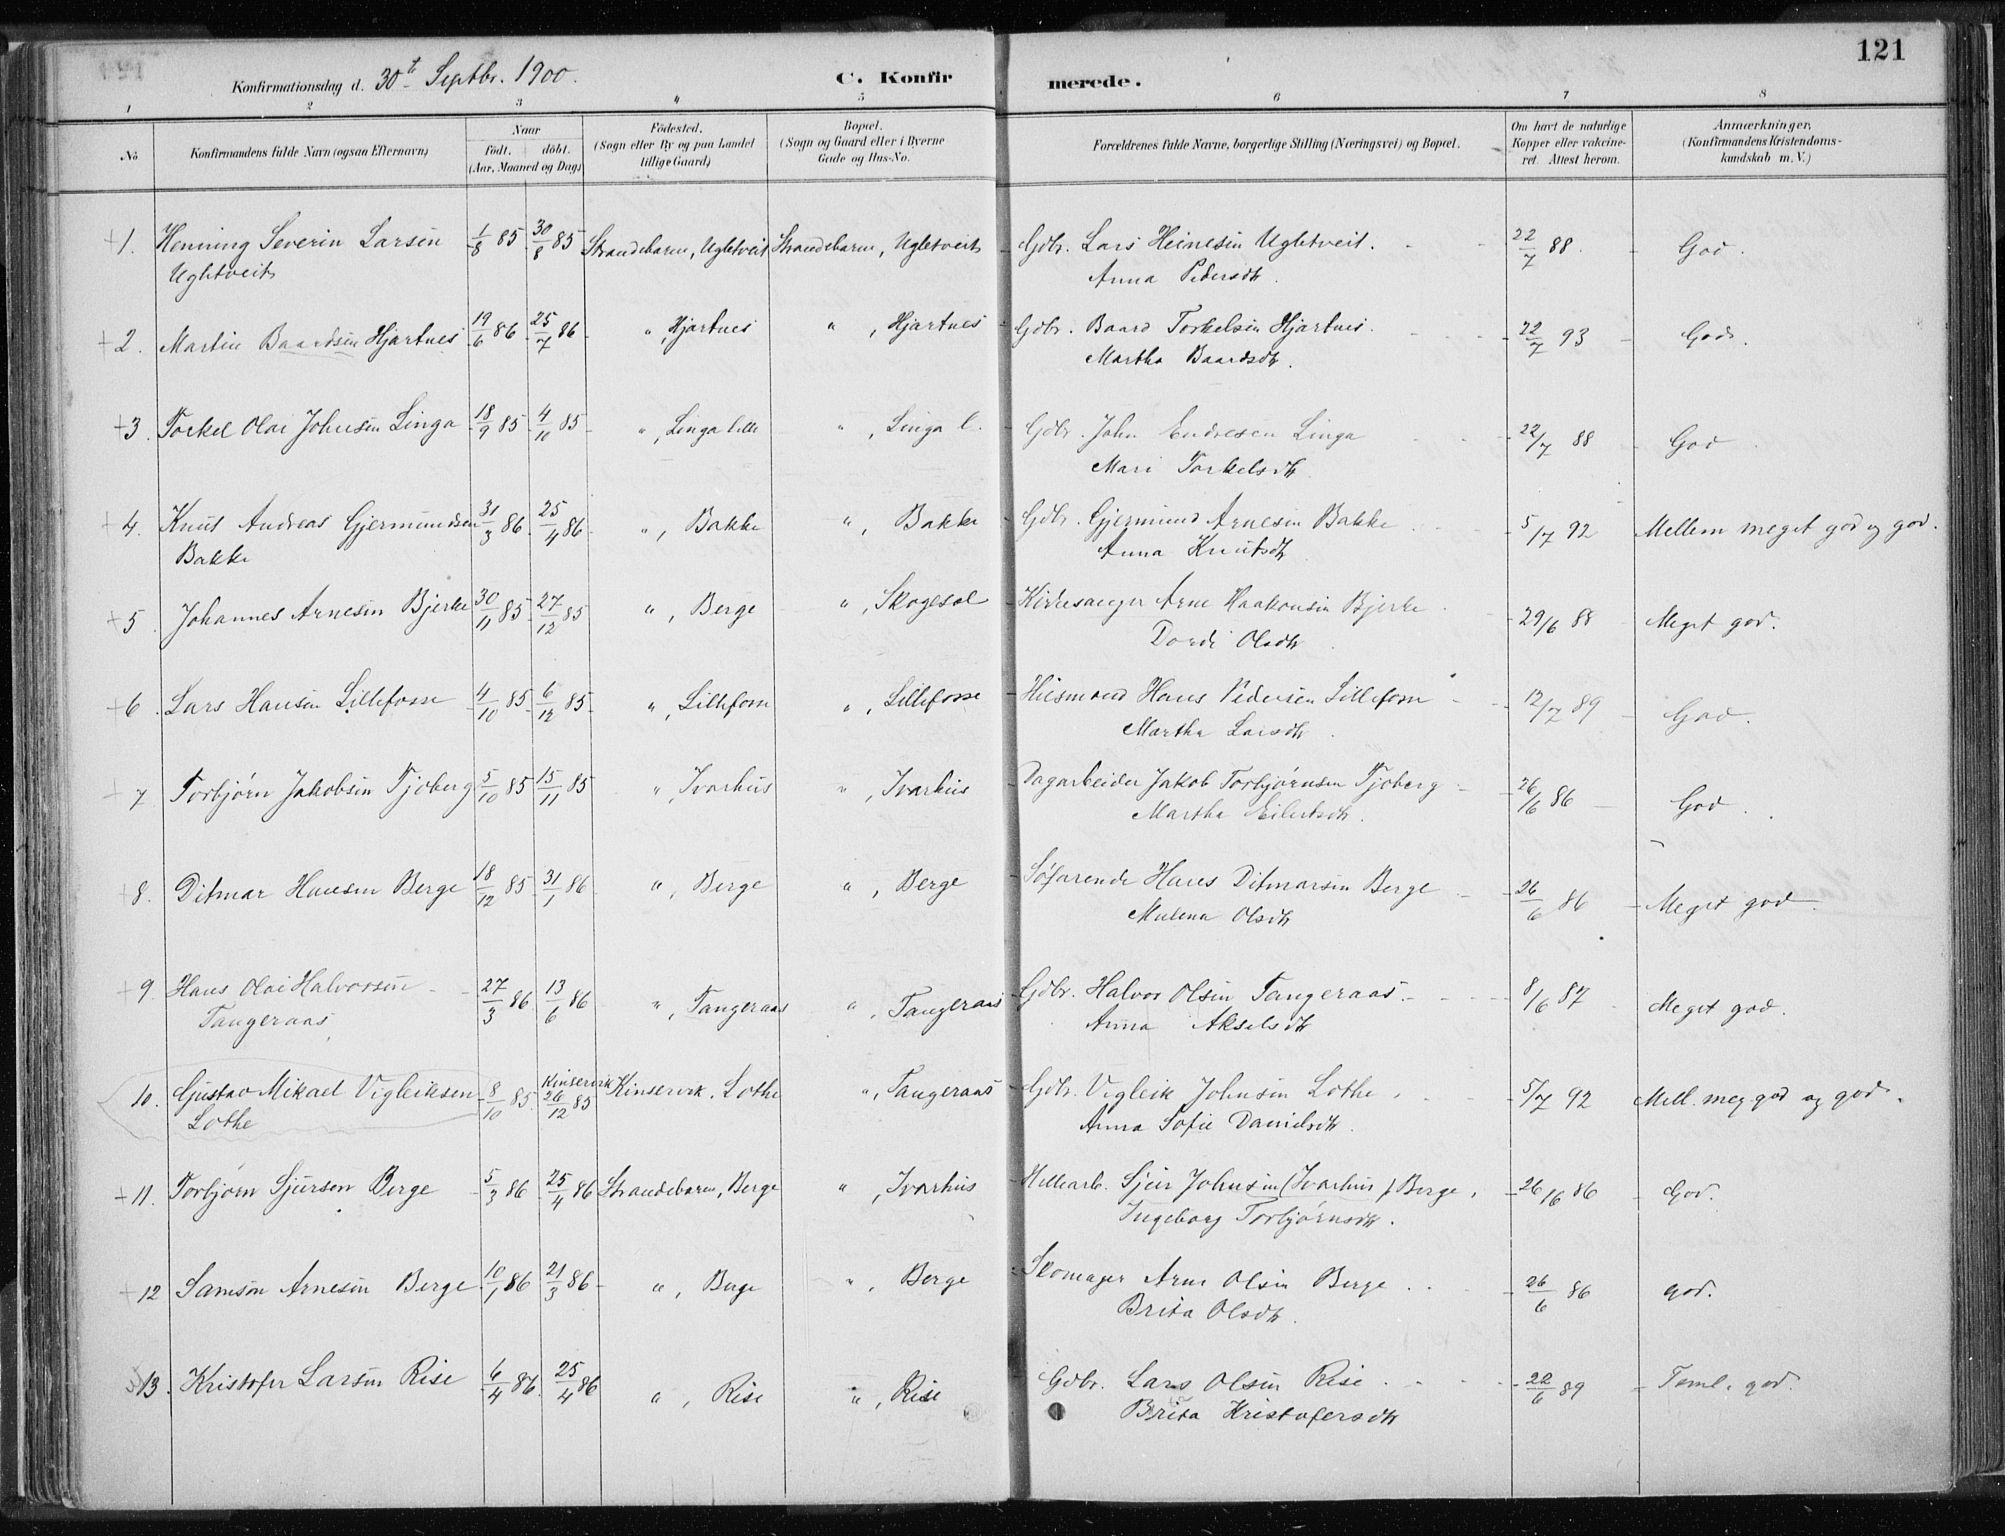 121
Konfirmationsdag d. 30te Septbr. 1900. C. Konfirmerede.
1 2 3 4 5 6 7 8
No
Konfirmandens fulde Navn (ogsaa Efternavn)
Naar födt. döbt. (Aar, Maaned og Dag)
Födested. (Sogn eller By og paa Landet tillige Gaard)
Bopæl. (Sogn og Gaard eller i Byerne Gade og Hus-No.
Forældrenes fulde Navne, borgerlige Stilling (Næringsvei) og Bopæl.
Om havt de naturlige Kopper eller vakcineret. Attest herom.
Anmærkninger. (Konfirmandens Kristendomskundskab m. V.)
1. Henning Severin Larsen 1/8 85 30/8 85 Strandebarm, Ugletveit Strandebarm, Ugletveit Gdbr. Lars Heinesen Ugletveit. 22/7 88. God.
Ugletveit Anna Pedersdtr.
2. Martin Baardsen Hjartnes 19/6 86 25/7 86 ", Hjartnes ", Hjartnes Gdbr. Baard Torkelsen Hjartnes. 22/7 93 God.
Martha Baardsdtr.
3. Torkel Olai Johnsen Linga 18/9 85 4/10 85 ", Linga lille ", Linga l. Gdbr. John Endresen Linga 22/7 88 God
Mari Torkelsdtr
4. Knut Andreas Gjermundsen 31/3 86 25/4 86 ", Bakke ", Bakke Gdbr. Gjermund Arnesen Bakke 5/7 92 Mellem meget god og god.
Bakke Anna Knutsdtr
5. Johannes Arnesen Bjerke 30/11 85 27/12 85 ", Berge ", Skogesal Kirkesanger Arne Haakonsen Bjerke 29/6 88 Meget god.
Dordi Olsdtr
6. Lars Hansen Lillefosse 4/10 85 6/12 85 ", Lillefosse ", Lillefosse Husmand Hans Pedersen Lillefosse 12/7 89 God.
Martha Larsdtr
7. Torbjørn Jakobsen Tjoberg 5/10 85 15/11 85 ", Ivarhus ", Ivarhus Dagarbeider Jakob Torbjørnsen Tjoberg 26/6 86 God.
Martha Eilertsdtr.
8. Ditmar Hansen Berge 18/12 85 31/1 86 ", Berge ", Berge Søfarende Hans Ditmarsen Berge 26/6 86 Meget god
Malena Olsdtr
9. Hans Olai Halvorsen 27/3 86 13/6 86 ", Tangeraas ", Tangeraas Gdbr. Halvor Olsen Tangeraas 8/6 87 Meget god.
Tangeraas Anna Akselsdtr
10. Gustav Mikael Vigleiksen 8/10 85 Kinservik 26/12 85 Kinservik, Lothe ", Tangeraas Gdbr. Vigleik Johnsen Lothe 5/7 92 Mell. meg. god og god.
Lothe Anna Sofie Danielsdtr.
11. Torbjørn Sjursen Berge 5/3 86 25/4 86 Strandebarm, Berge ", Ivarhus Hellearb. Sjur Johnsen (Ivarhus) Berge. 26/6 86 God.
Ingeborg Torbjørnsdtr.
12 Samson Arnesen Berge 10/1 86 21/3 86 ", Berge ", Berge Skomager Arne Olsen Berge 26/6 86 god.
Brita Olsdtr.
13. Kristofer Larsen Rise 6/4 86 25/4 86 ", Rise ", Rise Gdbr. Lars Olsen Rise 22/6 89 Teml. god.
Brita Kristofersdtr